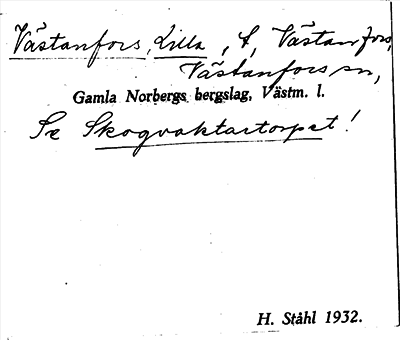 Västanfors, Lilla, t, Västanfors,
Västanfors sn,
Gamla Norbergs bergslag, Västm. l.
Se Skogvaktartorpet!
H. Ståhl 1932.